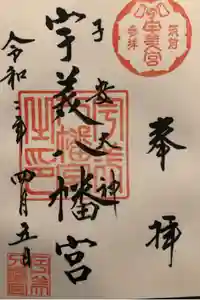 奉拝
宇美宮
子安大神
宇美八幡宮
令和二年四月五日